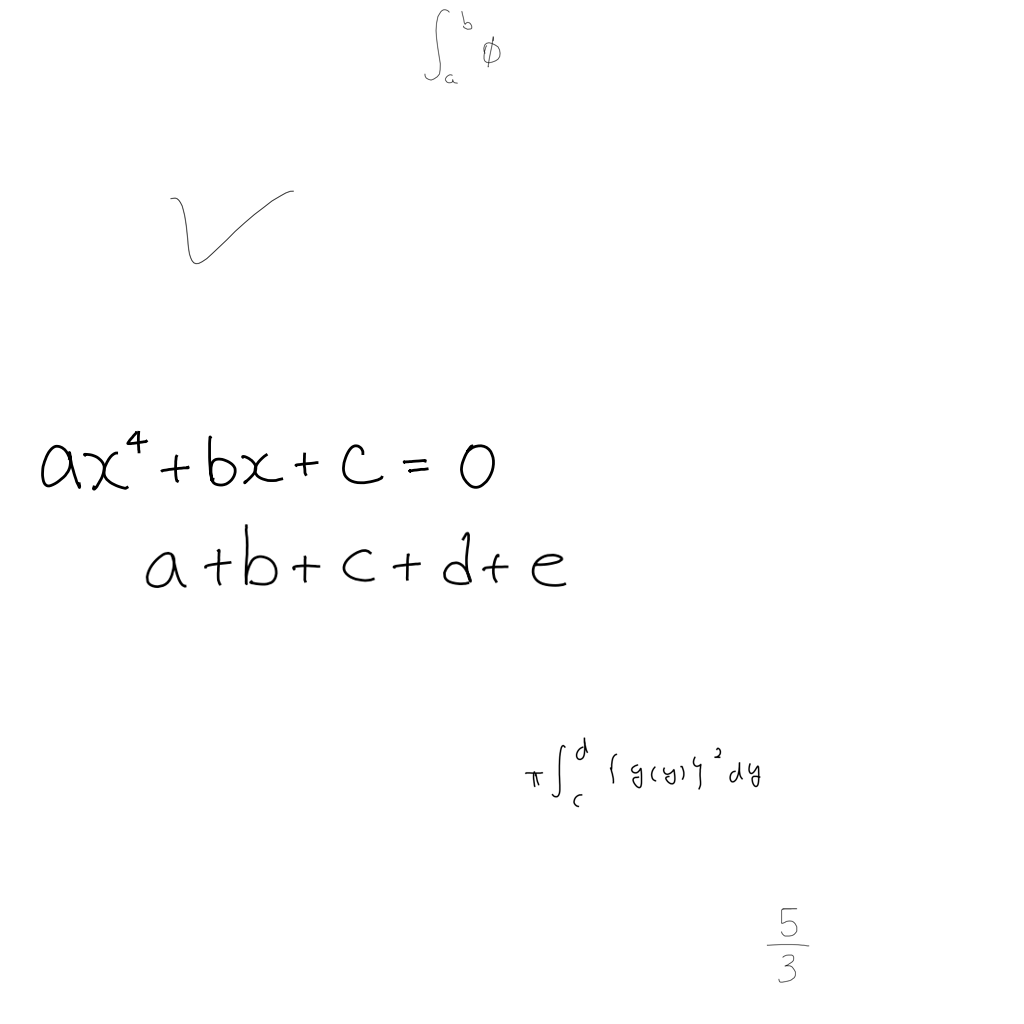 ∫_a^b ϕ
✓
ax⁴+bx+c=0
a+b+c+d+e
π∫_c^d {g(y)}²dy
5/3